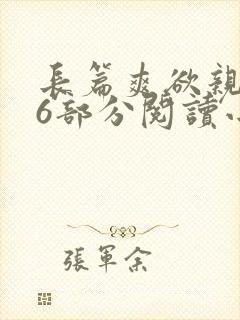 長篇爽欲親
6部分閱讀小
張軍余